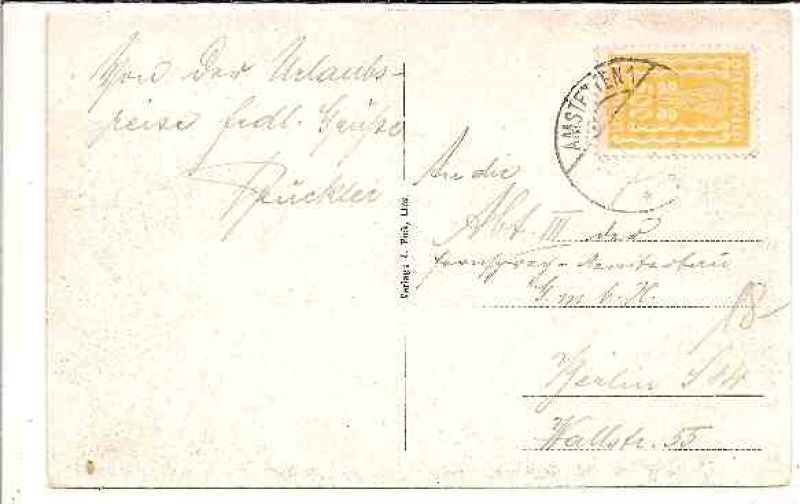 Von der Urlaubs-
reise frdl. Grüße
Pückler
AMSTETTEN 1
An die
Abt. III der
Fernsprech-
G. m. b. H.
Berlin S 14
Wallstr. 55
Verlag: J. Pick, Linz.